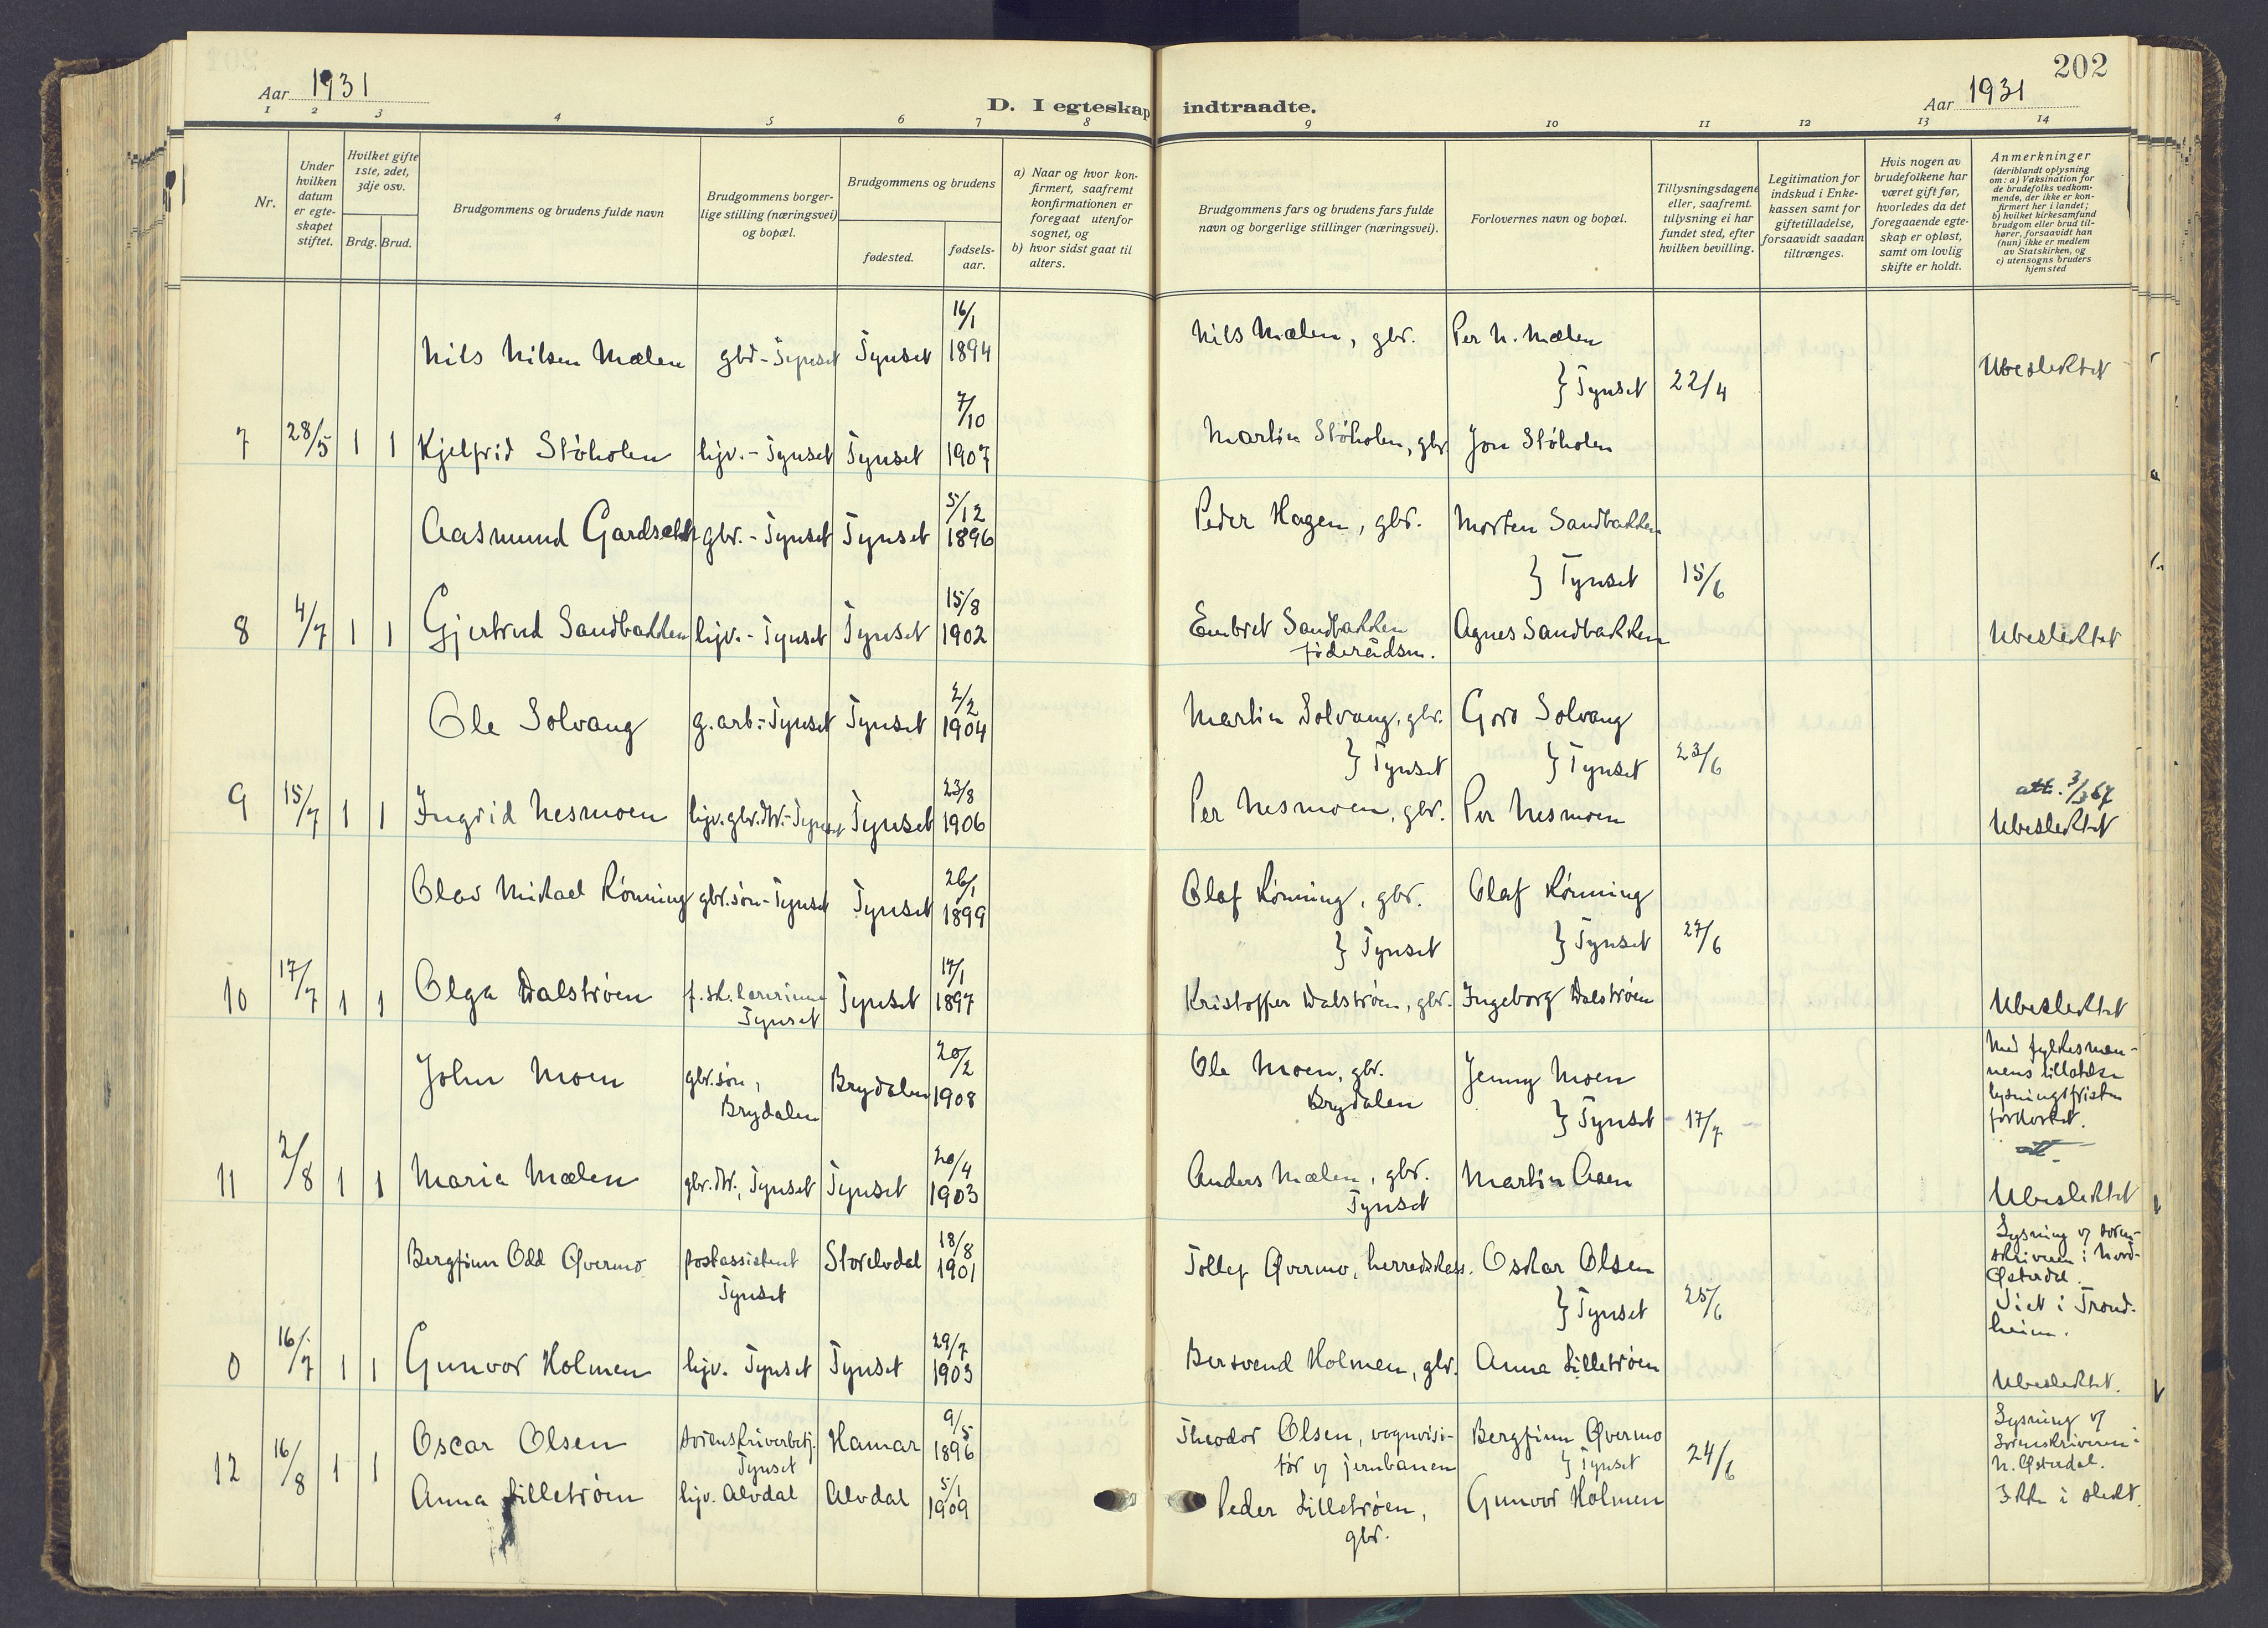 202
Aar 1931
D. I egteskap indtraadte.
Aar 1931
1 2 3 4 5 6 7 8 9 10 11 12 13 14
Nr.
Under hvilken datum er egte-skapet stiftet.
Hvilket gifte 1ste, 2det, 3dje osv.
Brdg. Brud.
Brudgommens og brudens fulde navn
Brudgommens borger-
lige stilling (næringsvei)
og bopæl.
Brudgommens og brudens
fødested.
fødsels-
aar.
a) Naar og hvor kon-
firmert, saafremt
konfirmationen er
foregaat utenfor
sognet, og
b) hvor sidst gaat til
alters.
Brudgommens fars og brudens fars fulde
navn og borgerlige stillinger (næringsvei).
Forlovernes navn og bopæl.
Tillysningsdagene
eller, saafremt
tillysning ei har
fundet sted, efter
hvilken bevilling.
Legitimation for
indskud i Enke-
kassen samt for
giftetilladelse,
forsaavidt saadan
tiltrænges.
Hvis nogen av
brudefolkene har
været gift før,
hvorledes da det
foregaaende egte-
skap er opløst,
samt om lovlig
skifte er holdt.
Anmerkninger
(deriblandt oplysning
om: a) Vaksination for
de brudefolks vedkom-
mende, der ikke er kon-
firmert her i landet;
b) hvilket kirkesamfund
brudgom eller brud til-
hører, forsaavidt han
(hun) ikke er medlem
av Statskirken, og
c) utensogns bruders
hjemsted
Nils Nilsen Mælen gbr - Tynset Tynset 16/1 1894 Nils Mælen, gbr. Per N. Mælen
} Tynset 22/4 Ubeslektet
7 28/5 1 1 Kjelfrid Støholen hjv. - Tynset Tynset 7/10 1907 Martin Støholen, gbr Jon Støholen
Aasmund Gardsæth gbr. - Tynset Tynset 5/12 1896 Peder Hagen, gbr. Morten Sandbakken
} Tynset 15/6
8 4/7 1 1 Gjertrud Sandbakken hjv. - Tynset Tynset 15/8 1902 Embret Sandbakken føderådsm. Agnes Sandbakken Ubeslektet
Ole Solvang g. arb. - Tynset Tynset 2/2 1904 Martin Solvang, gbr. Goro Solvang
} Tynset } Tynset 23/6
9 15/7 1 1 Ingrid Nesmoen hjv. gbr. dtr. - Tynset Tynset 23/8 1906 Per Nesmoen, gbr. Per Nesmoen att. 3/3 67 Ubeslektet
Olav Mikael Rønning gbr. søn - Tynset Tynset 26/1 1899 Olaf Rønning, gbr. Olaf Rønning
} Tynset } Tynset 27/6
10 17/7 1 1 Olga Dalstrøen f. sk. lærerinne Tynset Tynset 17/1 1897 Kristoffer Dalstrøen, gbr. Ingeborg Dalstrøen Ubeslektet
John Moen gbr. søn, Brydalen Brydalen 20/2 1908 Ole Moen, gbr. Brydalen Jenny Moen
} Tynset - 17/7 -
Med fylkesman-
nens tillatelse
lysningsfristen
forkortet.
att.
11 2/8 1 1 Marie Mælen gbr. dtr., Tynset Tynset 20/4 1903 Anders Mælen, gbr. Tynset Martin Aaen Ubeslektet
Bergfinn Odd Øvermo postassistent Tynset Storelvdal 18/8 1901 Tollef Øvermo, herredskass. Oskar Olsen
} Tynset 25/6
Lysning v/ soren-
skriveren i Nord-
Østerdal.
Viet i Trond-
heim.
0 16/7 1 1 Gunvor Holmen hjv. Tynset Tynset 29/7 1903 Bersvend Holmen, gbr. Anna Lilletrøen Ubeslektet.
12 16/8 1 1 Oscar Olsen sorenskriverbetj. Tynset Hamar 9/5 1896 Theodor Olsen, vognvisi-
tør v/ jernbanen Bergfinn Øvermo
} Tynset 24/6
Lysning v/
Sorenskriveren i
N. Østerdal.
Ikke i slekt.
Anna Lilletrøen hjv. Alvdal Alvdal 5/1 1909 Peder Lilletrøen,
gbr. Gunvor Holmen